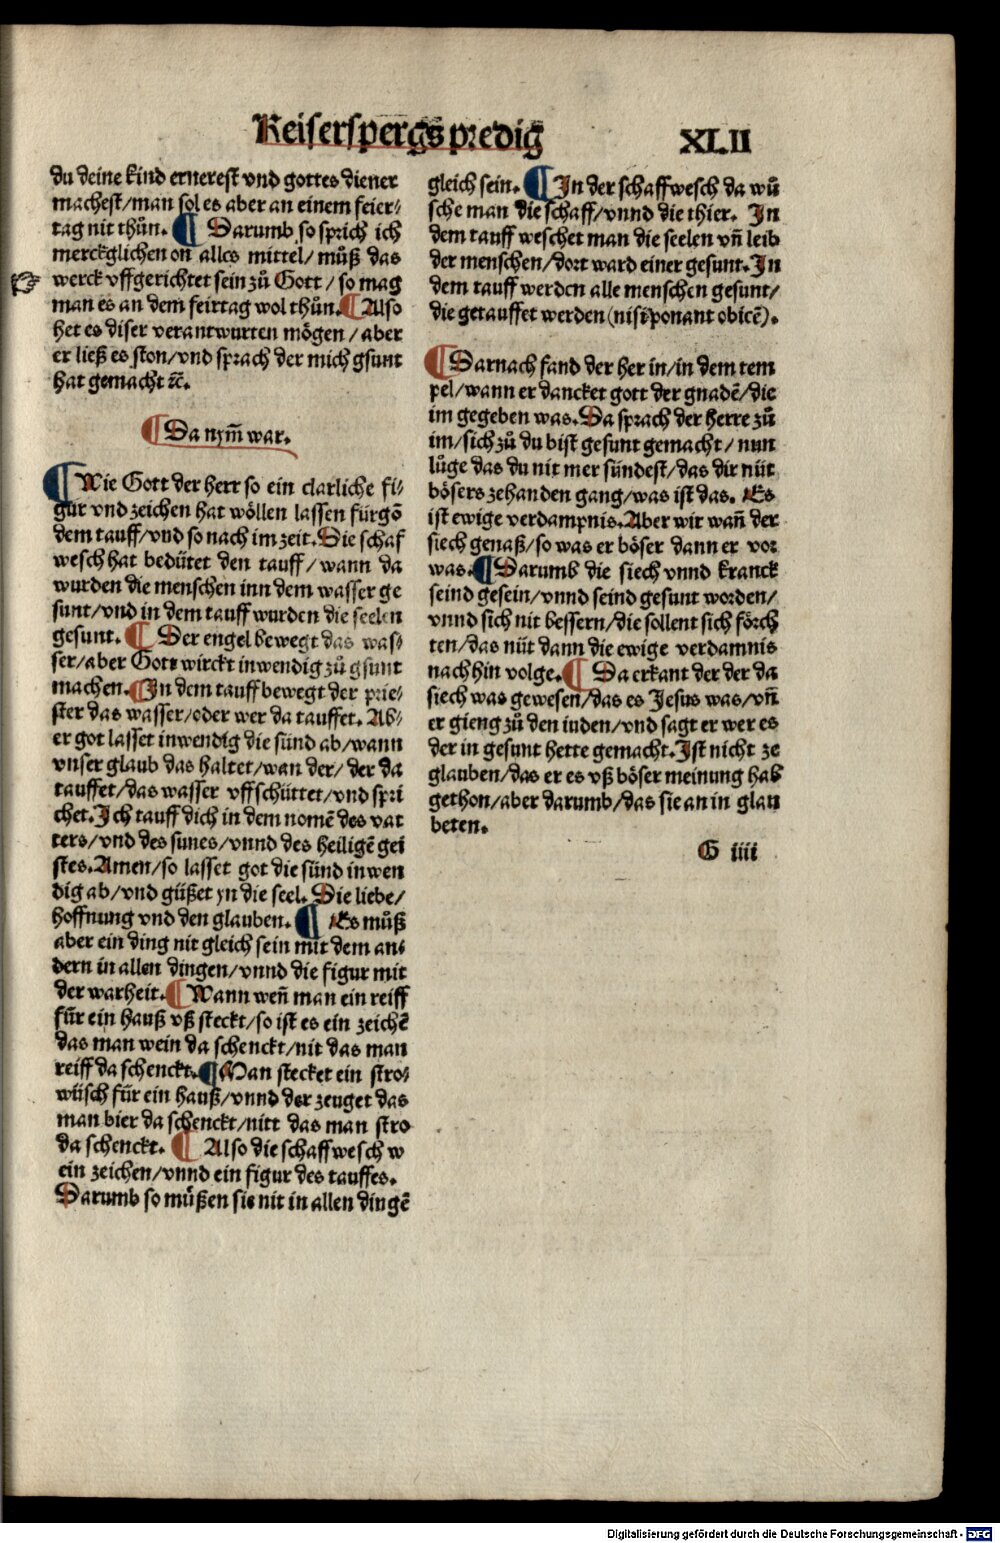 Keiserspergs predig XLII
du deine kind ernerest vnd gottes diener
machest/man sol es aber an einem feier⸗
tag nit thůn. ¶ Darumb so sprich ich
mercklichen on alles mittel/ můß das
werck vffgerichtet sein zů Gott/ so mag
man es an dem feirtag wol thůn. ¶ Also
het es diser verantwurten mögen/ aber
er ließ es ston/vnd sprach der mich gsunt
hat gemacht ꝛc̄.
¶ Da nym̄ war.
¶ Wie Gott der herr so ein clarliche fi⸗
gur vnd zeichen hat wöllen lassen fürgō
dem tauff/vnd so nach im zeit. Die schaf
wesch hat bedütet den tauff/ wann da
wurden die menschen inn dem wasser ge
sunt/vnd in dem tauff wurden die seelen
gesunt. ¶ Der engel bewegt das was⸗
ser/aber Gott wirckt inwendig zů gsunt
machen. ¶ In dem tauff bewegt der prie⸗
ster das wasser/oder wer da tauffet. Ab⸗
er got lasset inwendig die sünd ab/wann
vnser glaub das haltet/wan der/ der da
tauffet/das wasser vffschüttet/vnd spri
chet. Ich tauff dich in dem nomē des vat
ters/vnd des sunes/vnnd des heiligē gei
stes. Amen/so lasset got die sünd inwen
dig ab/vnd güßet yn die seel. Die liebe/
hoffnung vnd den glauben. ¶ Es můß
aber ein ding nit gleich sein mit dem an⸗
dern in allen dingen/vnnd die figur mit
der warheit. ¶ Wann weñ man ein reiff
für ein hauß vß steckt/so ist es ein zeichē
das man wein da schenckt/nit das man
reiff da schenckt. ¶ Man stecket ein stro⸗
wüsch für ein hauß/vnnd der zeuget das
man bier da schenckt/nitt das man stro
da schenckt. ¶ Also die schaffwesch w
ein zeichen/vnnd ein figur des tauffes.
Darumb so müßen sie nit in allen dingē
gleich sein. ¶ In der schaffwesch da wů
sche man die schaff/vnnd die thier. In
dem tauff weschet man die seelen vñ leib
der menschen/dort ward einer gesunt. In
dem tauff werden alle menschen gesunt/
die getauffet werden (nisi ponant obicē).
¶ Darnach fand der her in/in dem tem
pel/wann er dancket gott der gnadē/die
im gegeben was. Da sprach der herre zů
im/sich zů du bist gesunt gemacht/ nun
lůge das du nit mer sündest/das dir nüt
bösers zehanden gang/was ist das. Es
ist ewige verdampnis. Aber wir wañ der
siech genaß/so was er böser dann er vor
was. ¶ Darumb die siech vnnd kranck
seind gesein/vnnd seind gesunt worden/
vnnd sich nit bessern/die sollent sich förch
ten/das nüt dann die ewige verdamnis
nachhin volge. ¶ Da erkant der der da
siech was gewesen/das es Jesus was/vñ
er gieng zů den iuden/vnd sagt er wer es
der in gesunt hette gemacht. Ist nicht ze
glauben/das er es vß böser meinung hab
gethon/aber darumb/das sie an in glau
beten.
G iiii
Digitalisierung gefördert durch die Deutsche Forschungsgemeinschaft - DFG